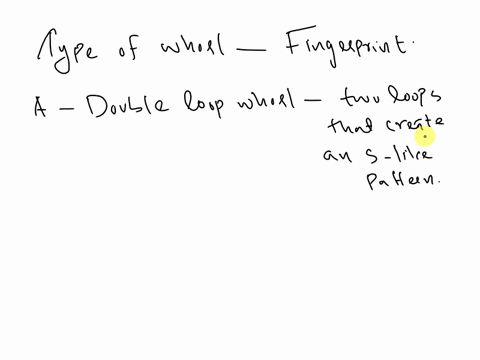 Type of whorl — Fingerprint.
A - Double loop whorl - two loops
that create
an s-like
pattern.